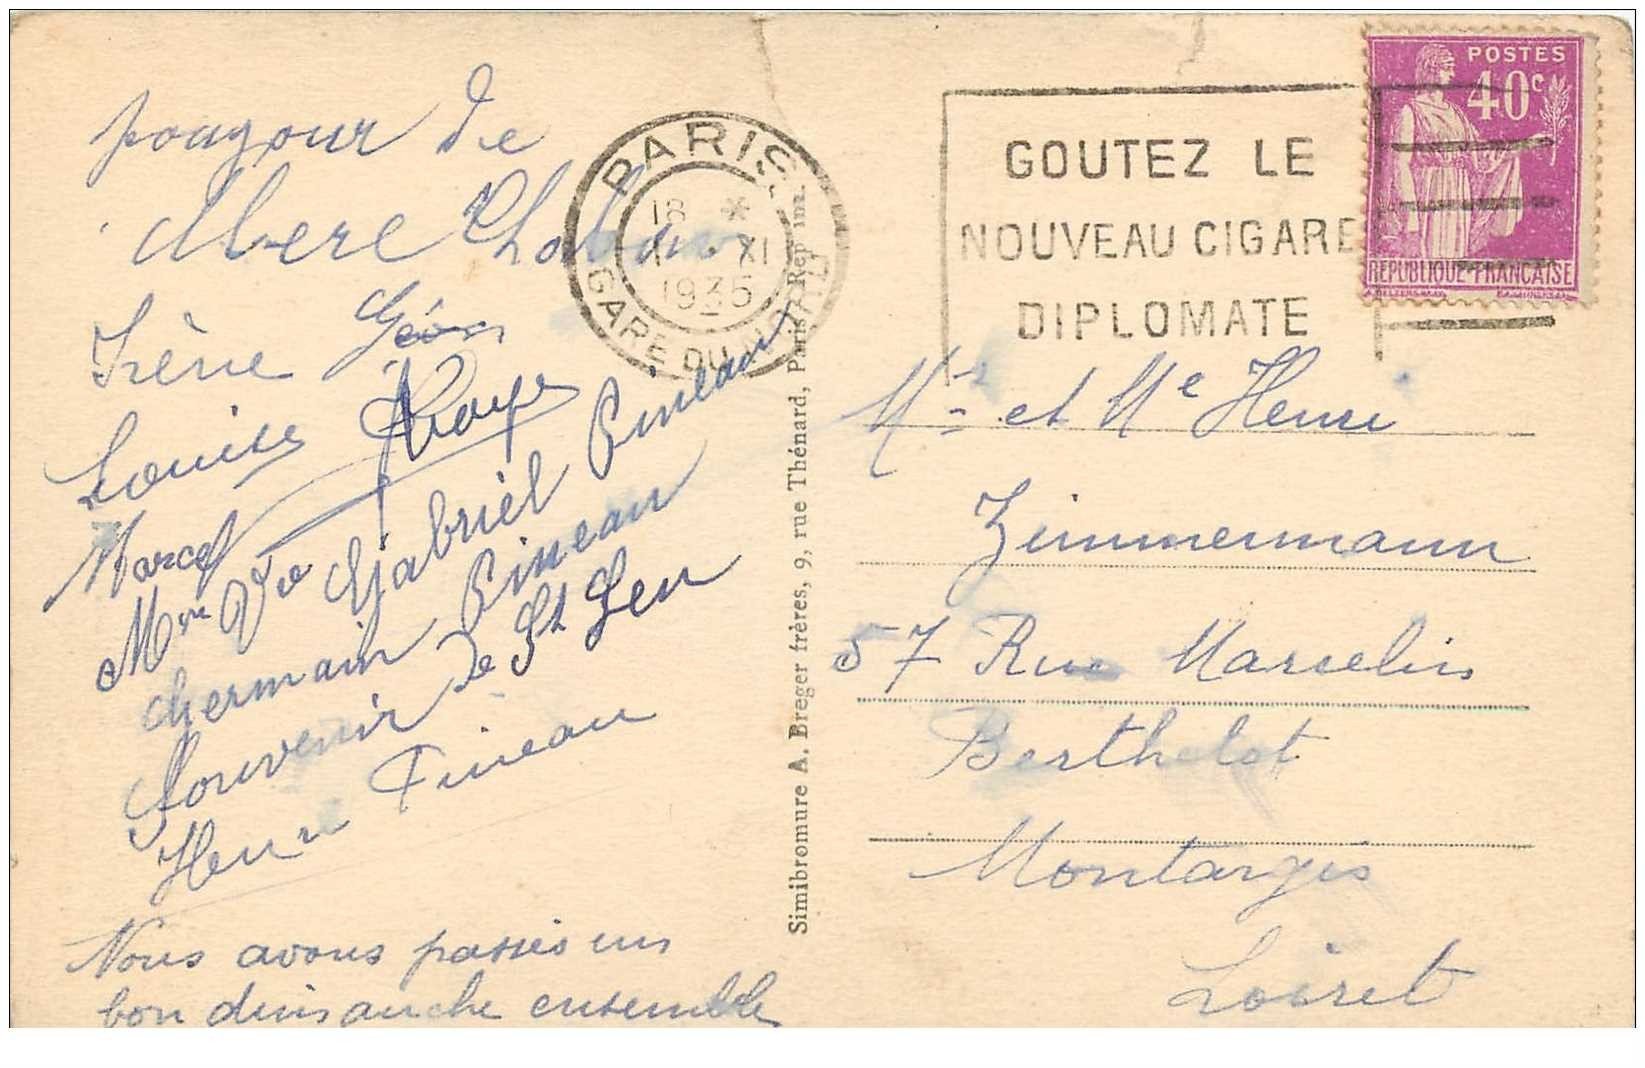 pougour de
Mere
Irène Léon
Louise
Marcel Roye
Mme Vve Gabriel Pineau
Germain Pineau
Souvenir de St Leu
Henri Pineau
Nous avons passés un
bon dimanche ensemble
PARIS
18 *
XI
1935
GARE DU NORD
GOUTEZ LE
NOUVEAU CIGARE
DIPLOMATE
POSTES
40c
REPUBLIQUE FRANÇAISE
Simibromure A. Breger frères, 9, rue Thénard, Paris
Mr et Me Henri
Zimmermann
57 Rue Marcelin
Berthelot
Montargis
Loiret